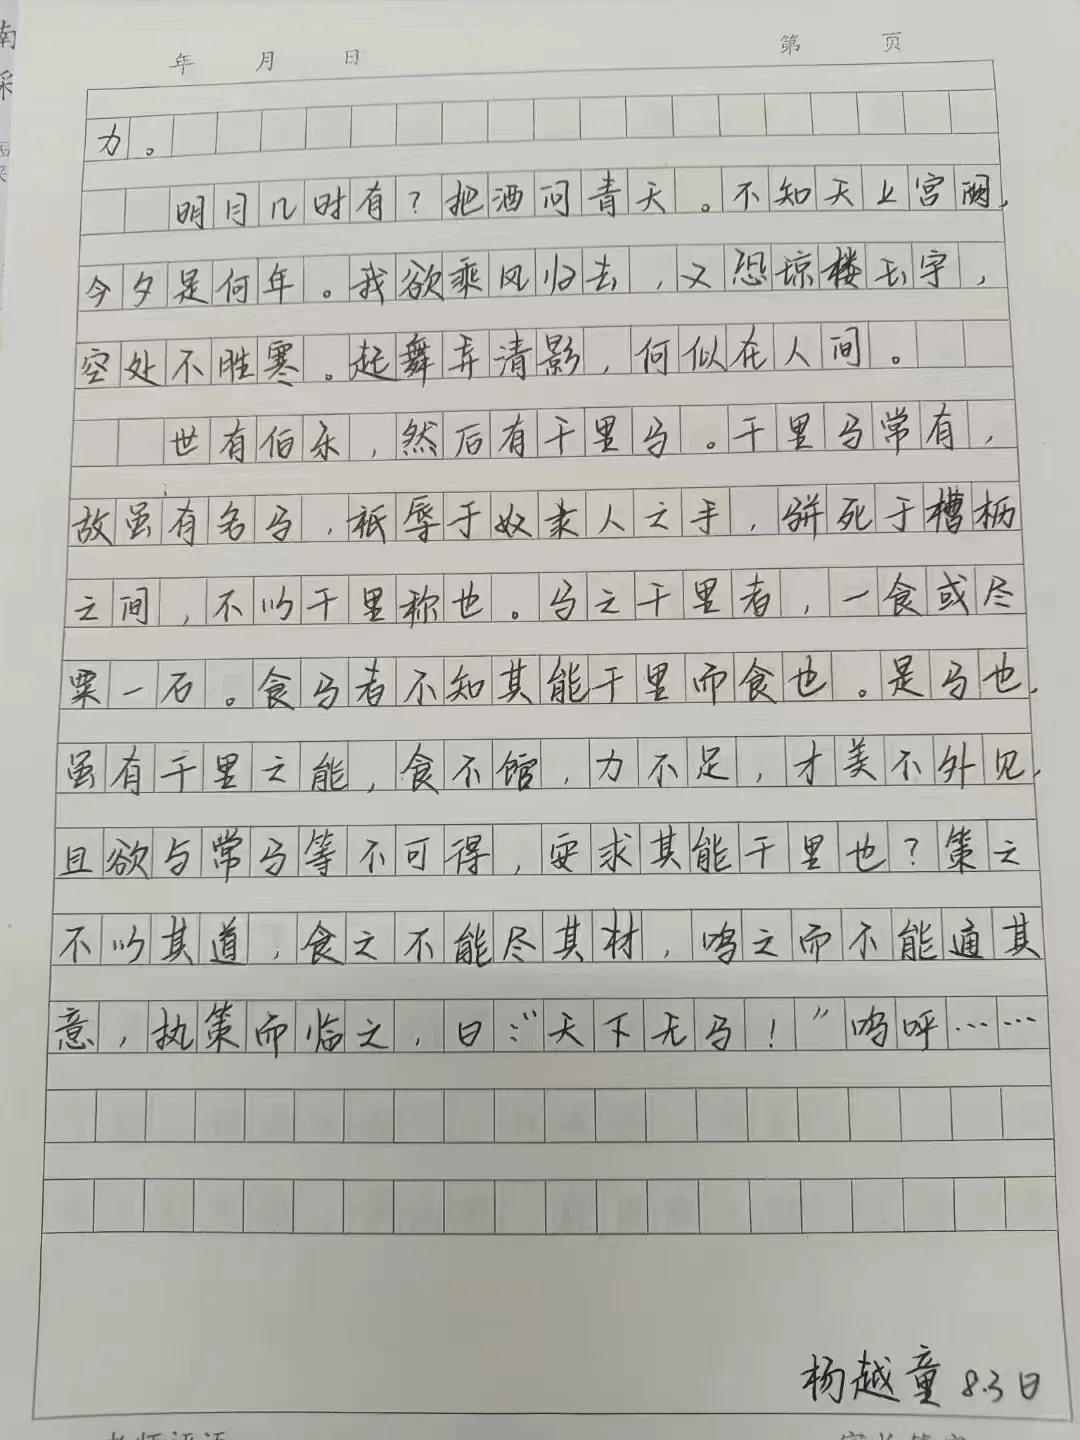 年 月 日 第 页
力。
明月几时有?把酒问青天。不知天上宫阙,
今夕是何年。我欲乘风归去,又恐琼楼玉宇,
空处不胜寒。起舞弄清影,何似在人间。
世有伯乐,然后有千里马。千里马常有,
故虽有名马,祇辱于奴隶人之手,骈死于槽枥
之间,不以千里称也。马之千里者,一食或尽
粟一石。食马者不知其能千里而食也。是马也,
虽有千里之能,食不馆,力不足,才美不外见,
且欲与常马等不可得,安求其能千里也?策之
不以其道,食之不能尽其材,鸣之而不能通其
意,执策而临之,曰:“天下无马!”呜呼……
杨越童 8.3日